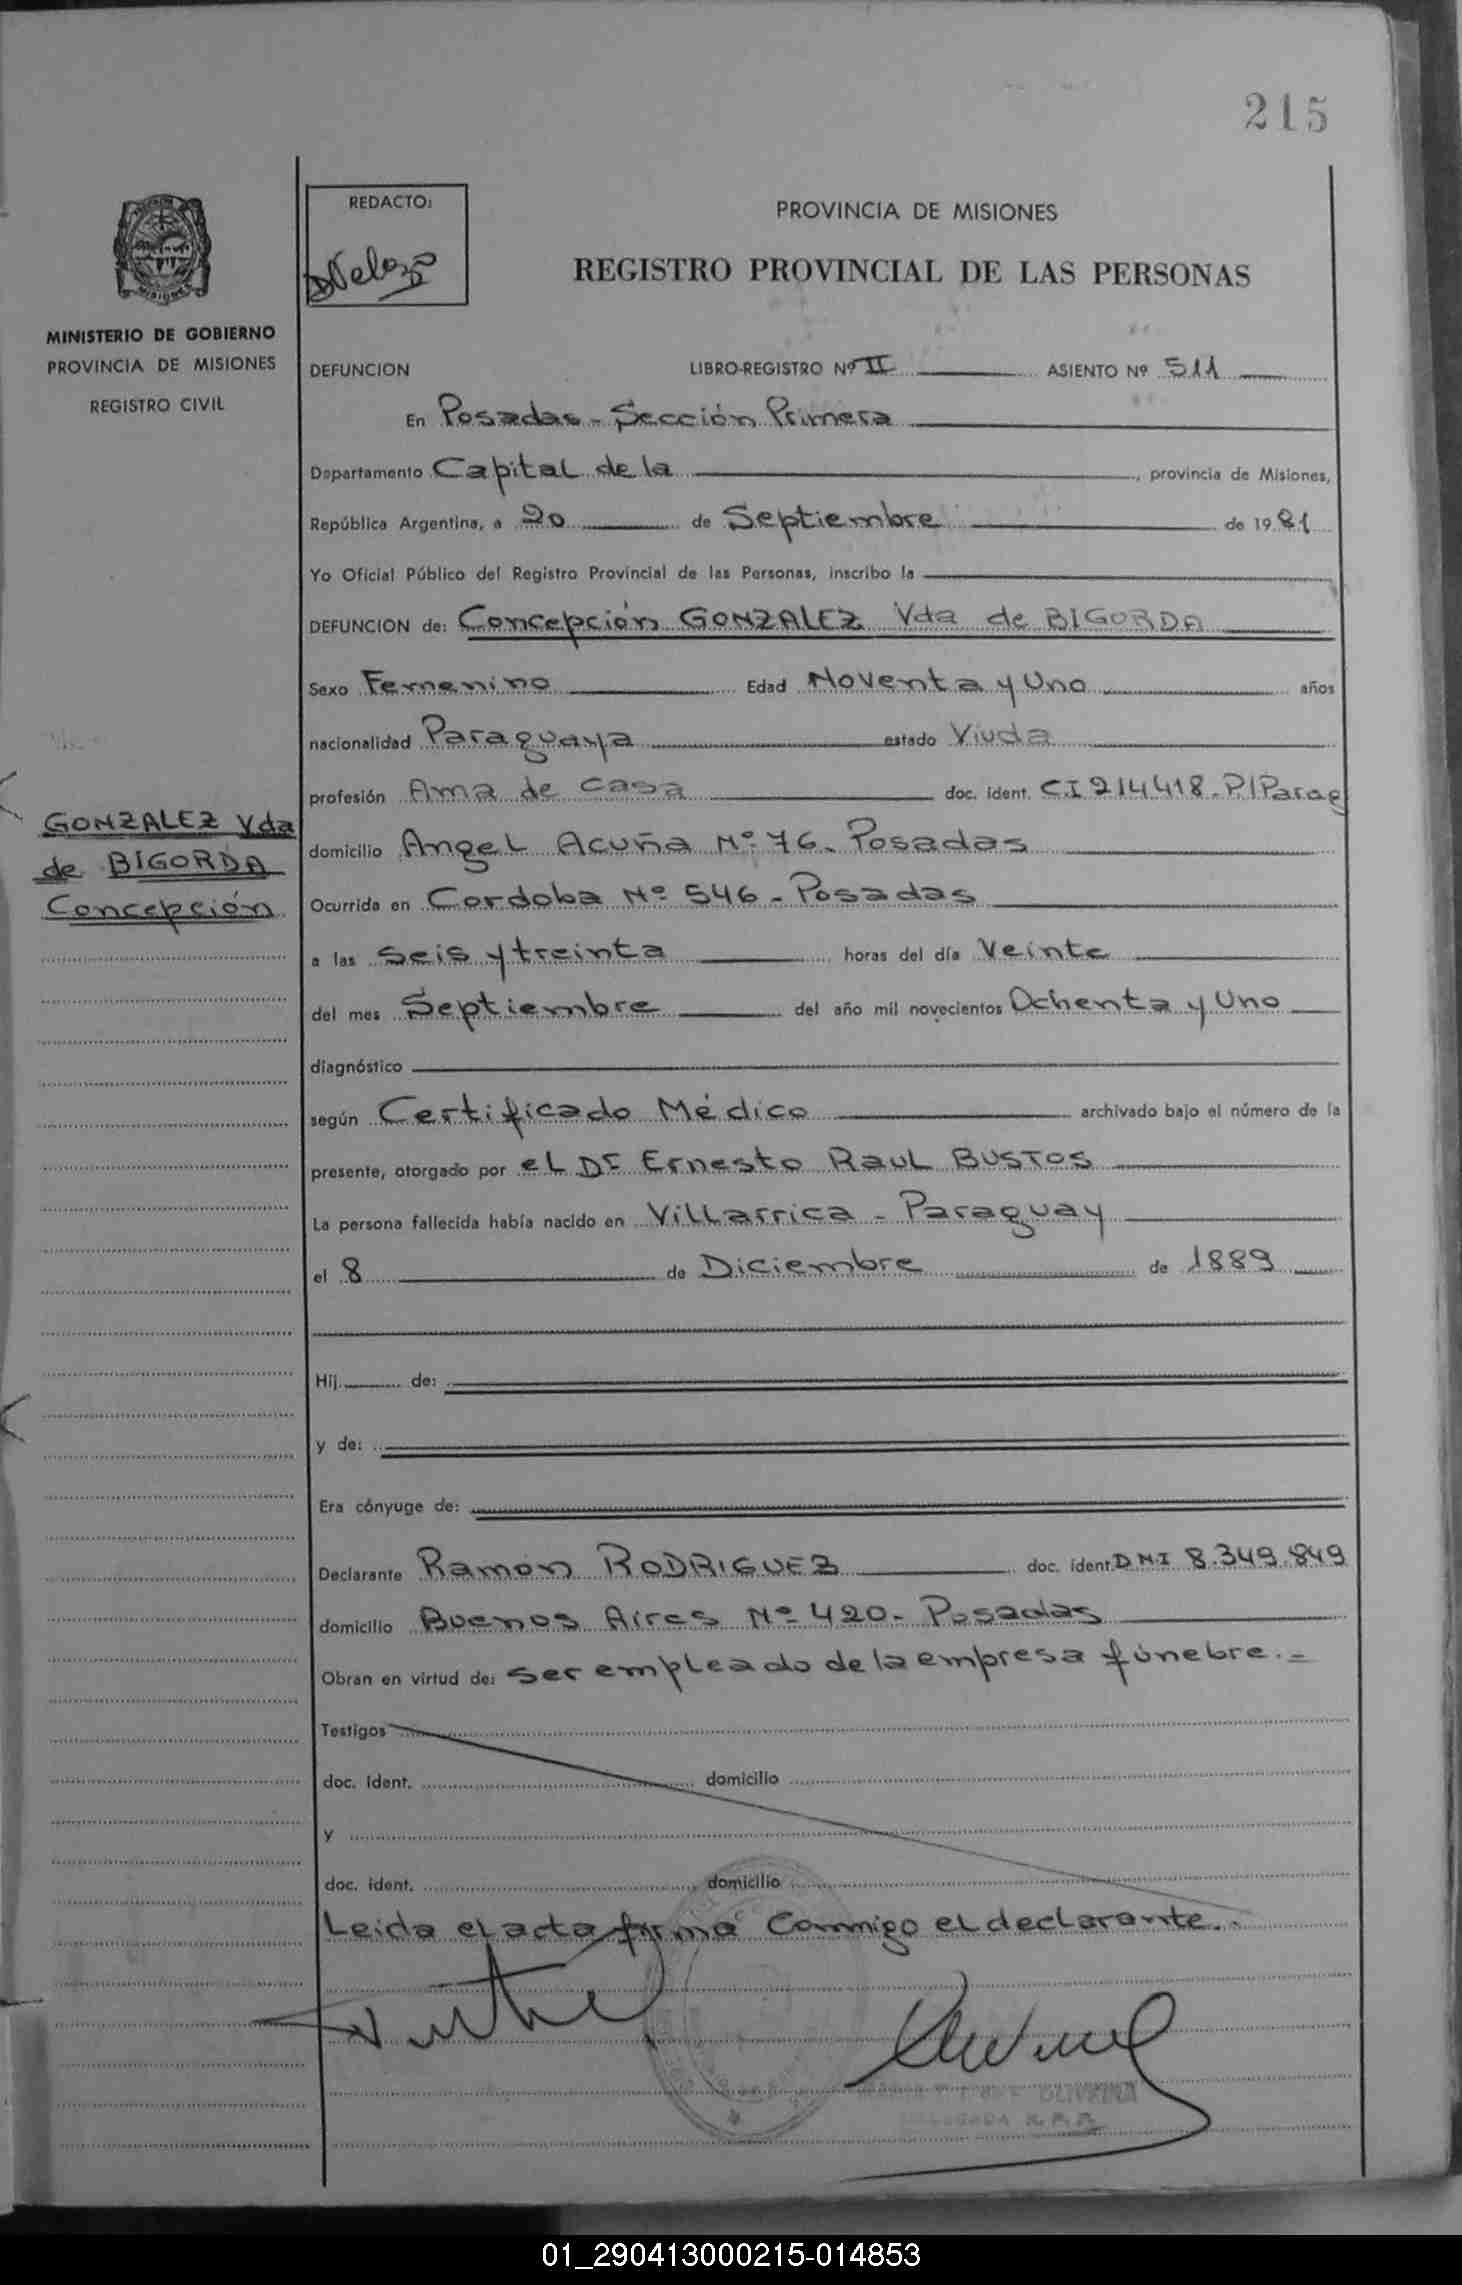 215
REDACTO:
PROVINCIA DE MISIONES
REGISTRO PROVINCIAL DE LAS PERSONAS
MINISTERIO DE GOBIERNO
PROVINCIA DE MISIONES
REGISTRO CIVIL
DEFUNCION LIBRO-REGISTRO Nº II ASIENTO Nº 511
En Posadas - Sección Primera
Departamento Capital de la, provincia de Misiones,
República Argentina, a 20 de Septiembre de 1981
Yo Oficial Público del Registro Provincial de las Personas, inscribo la
DEFUNCION de: Concepción GONZALEZ Vda de BIGORDA
Sexo Femenino Edad Noventa y Uno años
nacionalidad Paraguaya estado Viuda
profesión Ama de casa doc. ident. C.I 214418.P/Parag
GONZALEZ Vda
de BIGORDA
Concepción
domicilio Angel Acuña Nº 76. Posadas
Ocurrida en Cordoba Nº 546 - Posadas
a las Seis y treinta horas del día Veinte
del mes Septiembre del año mil novecientos Ochenta y Uno
diagnóstico
según Certificado Médico archivado bajo el número de la
presente, otorgado por el Dr Ernesto Raul BUSTOS
La persona fallecida había nacido en Villarrica - Paraguay
el 8 de Diciembre de 1889
Hij de:
y de:
Era cónyuge de:
Declarante Ramón RODRIGUEZ doc. ident. D.N.I 8.349.849
domicilio Buenos Aires Nº 420. Posadas
Obran en virtud de: ser empleado de la empresa fúnebre.-
Testigos
doc. ident. domicilio
y
doc. ident. domicilio
Leida el acta firma Conmigo el declarante..
OLIVEIRA
01_290413000215-014853